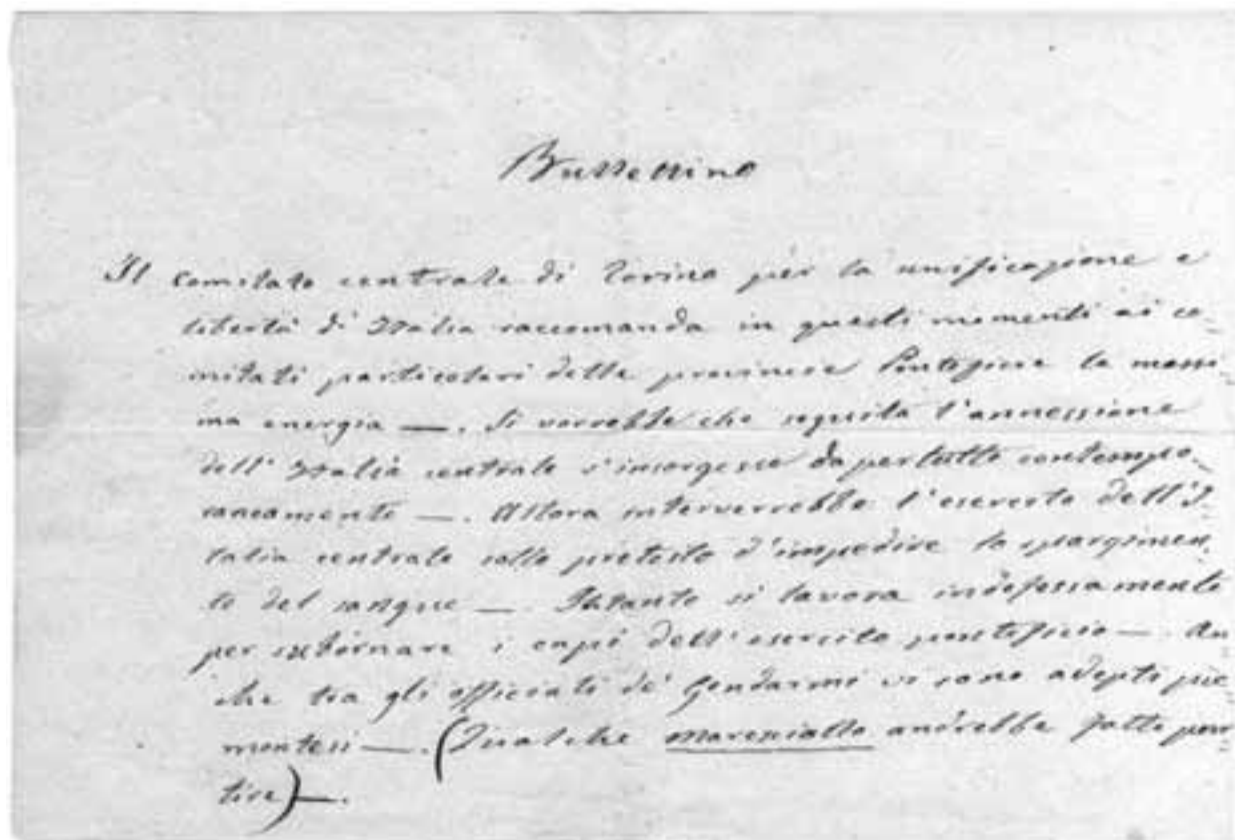 Bullettino
Il comitato centrale di Torino per la unificazione e
libertà d'Italia raccomanda in questi momenti ai co=
mitati particolari delle provincie Pontificie la massi=
ma energia —. Si vorrebbe che seguita l'annessione
dell'Italia centrale s'insorgesse da pertutto contempo=
raneamente —. Allora interverrebbe l'esercito dell'I=
talia centrale sotto pretesto d'impedire lo spargimen=
to del sangue —. Intanto si lavora indefessamente
per subornare i capi dell'esercito pontificio —. An=
che tra gli officiali de' Gendarmi vi sono adepti pie=
montesi —. (Qualche maresciallo andrebbe fatto par=
tire) —.